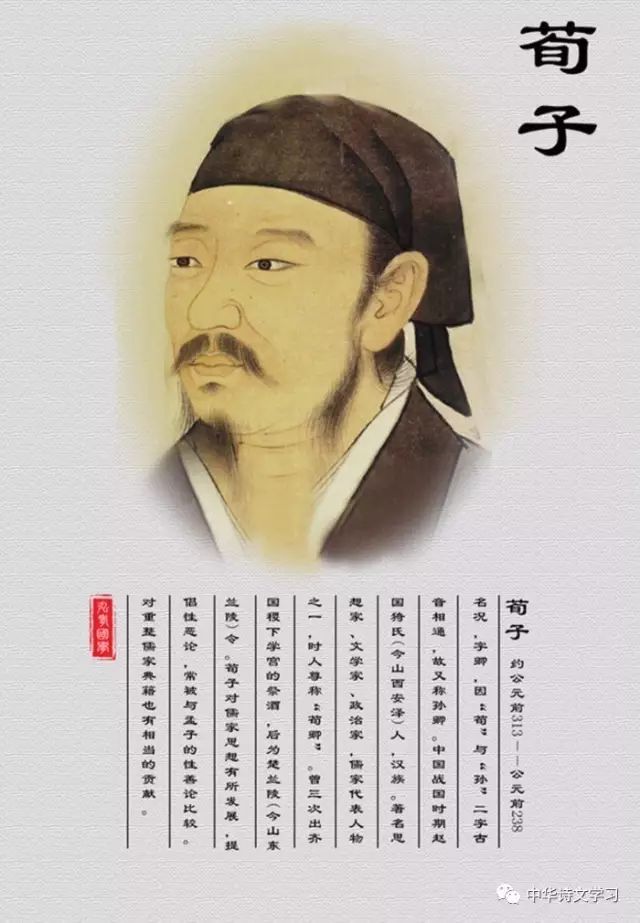 荀子
荀子 约公元前313——公元前238
名况，字卿，因“荀”与“孙”二字古
音相通，故又称孙卿。中国战国时期赵
国猗氏（今山西安泽）人，汉族。著名思
想家、文学家、政治家，儒家代表人物
之一，时人尊称“荀卿”。曾三次出齐
国稷下学宫的祭酒，后为楚兰陵（今山东
兰陵）令。荀子对儒家思想有所发展，提
倡性恶论，常被与孟子的性善论比较。
对重整儒家典籍也有相当的贡献。
中华诗文学习